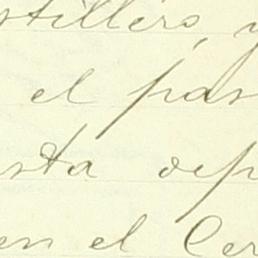 stillero, y
el pas
sta dep
en el Cer